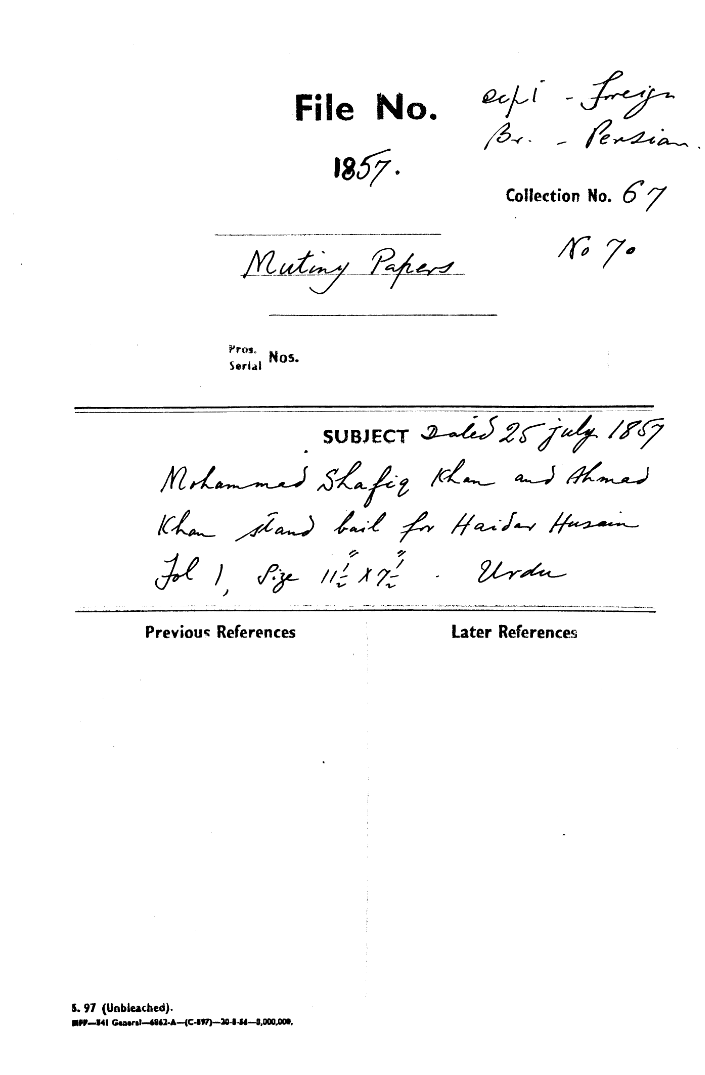 File No.
Dept - Foreign
Br. - Persian.
1857.
Collection No. 67
No 70
Mutiny Papers
Pros. Nos.
Serial
SUBJECT Dated 25 july 1857
Mohammad Shafiq Khan and Ahmad
Khan stand bail for Haidar Husain
Fol 1, Size 11½" X 7½" . Urdu
Previous References
Later References
S. 97 (Unbleached).
MFP—841 General—6862-A—(C-897)—20-8-54—8,000,000.